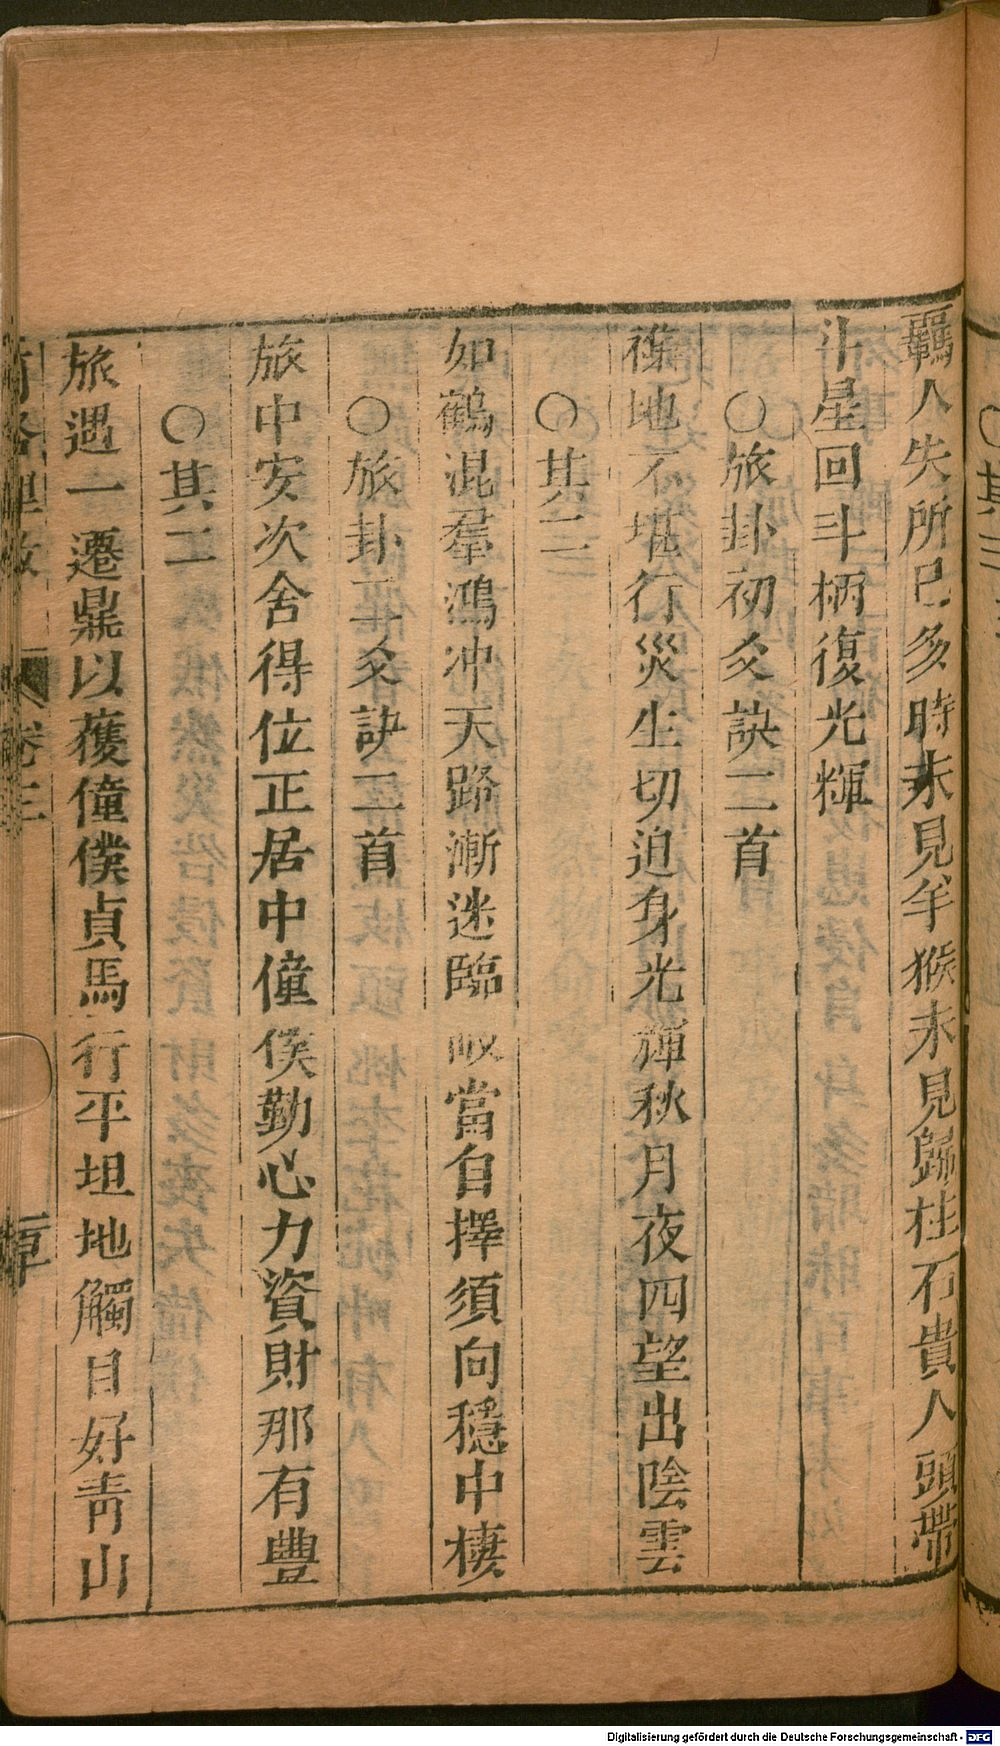 羈人失所已多時未見羊猴未見歸柱石貴人頭帶
斗星回斗柄復光輝
○旅卦初爻訣二首
穢地不堪行災生切迫身光輝秋月夜四望出陰雲
○其二
如鶴混羣鴻冲天路漸迷臨 當自擇須向穩中棲
○旅卦二爻訣二首
旅中安次舍得位正居中僮僕勤心力資財那有豐
○其二
旅遇一遷鼎以獲僮僕貞馬行平坦地觸目好青山
卷三
○其三
Digitalisierung gefördert durch die Deutsche Forschungsgemeinschaft - DFG